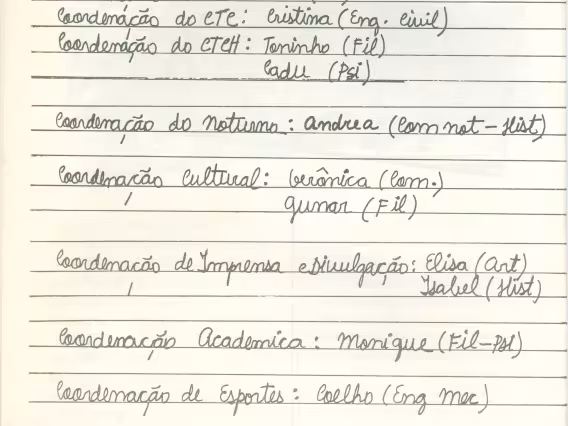 Coordenação do CTC: Cristina (Eng. Civil)
Coordenação do CTCH: Toninho (Fil)
Cadu (Psi)
Coordenação do Noturno: Andrea (Com not - Hist)
Coordenação Cultural: Verônica (Com.)
Gunar (Fil)
Coordenação de Imprensa e Divulgação: Elisa (Art)
Isabel (Hist)
Coordenação Academica: Monique (Fil-Psi)
Coordenação de Esportes: Coelho (Eng Mec)